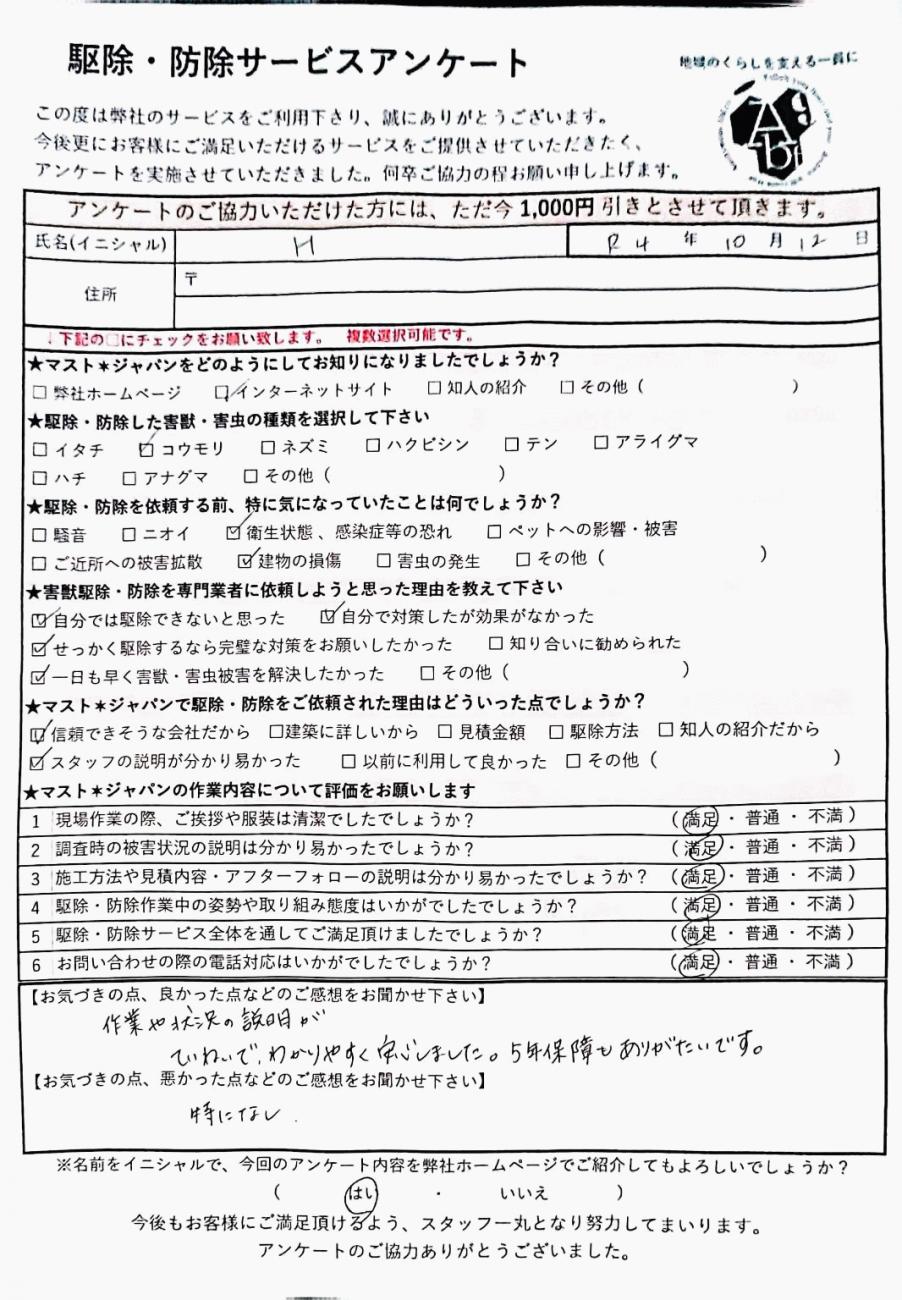 駆除・防除サービスアンケート
地域のくらしを支える一員に
この度は弊社のサービスをご利用下さり、誠にありがとうございます。
今後更にお客様にご満足いただけるサービスをご提供させていただきたく、
アンケートを実施させていただきました。何卒ご協力の程お願い申し上げます。
アンケートのご協力いただけた方には、ただ今1,000円引きとさせて頂きます。
氏名(イニシャル) H R4年10月12日
住所 〒
↓下記の□にチェックをお願い致します。 複数選択可能です。
★マスト＊ジャパンをどのようにしてお知りになりましたでしょうか？
□弊社ホームページ ☑インターネットサイト □知人の紹介 □その他（ ）
★駆除・防除した害獣・害虫の種類を選択して下さい
□イタチ ☑コウモリ □ネズミ □ハクビシン □テン □アライグマ
□ハチ □アナグマ □その他（ ）
★駆除・防除を依頼する前、特に気になっていたことは何でしょうか？
□騒音 □ニオイ ☑衛生状態、感染症等の恐れ □ペットへの影響・被害
□ご近所への被害拡散 ☑建物の損傷 □害虫の発生 □その他（ ）
★害獣駆除・防除を専門業者に依頼しようと思った理由を教えて下さい
☑自分では駆除できないと思った ☑自分で対策したが効果がなかった
☑せっかく駆除するなら完璧な対策をお願いしたかった □知り合いに勧められた
☑一日も早く害獣・害虫被害を解決したかった □その他（ ）
★マスト＊ジャパンで駆除・防除をご依頼された理由はどういった点でしょうか？
☑信頼できそうな会社だから □建築に詳しいから □見積金額 □駆除方法 □知人の紹介だから
☑スタッフの説明が分かり易かった □以前に利用して良かった □その他（ ）
★マスト＊ジャパンの作業内容について評価をお願いします
1 現場作業の際、ご挨拶や服装は清潔でしたでしょうか？ （満足・普通・不満）
2 調査時の被害状況の説明は分かり易かったでしょうか？ （満足・普通・不満）
3 施工方法や見積内容・アフターフォローの説明は分かり易かったでしょうか？ （満足・普通・不満）
4 駆除・防除作業中の姿勢や取り組み態度はいかがでしたでしょうか？ （満足・普通・不満）
5 駆除・防除サービス全体を通してご満足頂けましたでしょうか？ （満足・普通・不満）
6 お問い合わせの際の電話対応はいかがでしたでしょうか？ （満足・普通・不満）
【お気づきの点、良かった点などのご感想をお聞かせ下さい】
作業や状況の説明が
ていねいで、わかりやすく安心しました。5年保障もありがたいです。
【お気づきの点、悪かった点などのご感想をお聞かせ下さい】
特になし.
※名前をイニシャルで、今回のアンケート内容を弊社ホームページでご紹介してもよろしいでしょうか？
（ はい ・ いいえ ）
今後もお客様にご満足頂けるよう、スタッフ一丸となり努力してまいります。
アンケートのご協力ありがとうございました。